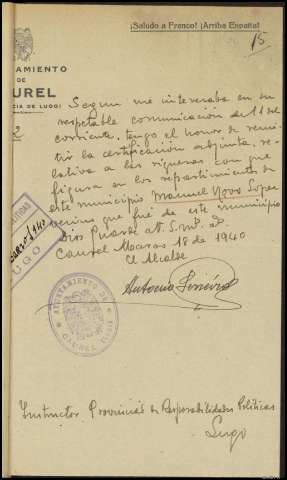 ¡Saludo a Franco! ¡Arriba España!
15
AMIENTO
DE
AUREL
(CIA DE LUGO)
Segun me interesaba en su
respetable comunicación de 11 del
corriente, tengo el honor de remi-
tir la certificación adjunta, re-
lativa a las riquezas con que
figura en los repartimientos de
este municipio Manuel Novo López
vecino que fué de este municipio
Dios guarde a V. S. m. a.
Caurel Marzo 18 de 1940
El Alcalde
Antonio
AYUNTAMIENTO DE
CAUREL (LUGO)
LUGO
Instructor Provincial de Responsabilidades Politicas
Lugo